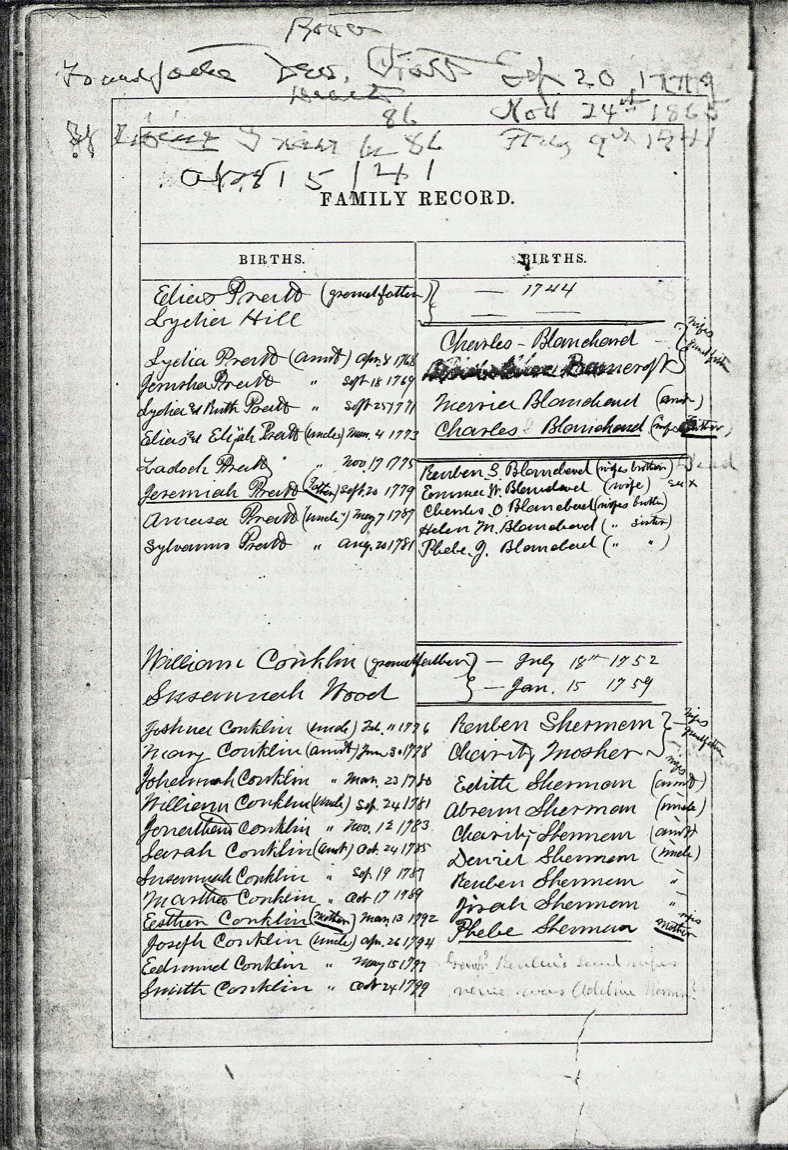 Born
Sep 20 1779
Death
86 Nov 24th 1865
86
1 5 / 4 1
FAMILY RECORD.
BIRTHS.
Elias Pratt (grandfather)
Lydia Hill
Lydia Pratt (aunt) Apr. 8 1768
Jemsha Pratt " Sept 18 1769
Lydia & Ruth Pratt " Sept 25 1771
Elias & Elijah Pratt (uncles) Mar. 4 1773
Zadock Pratt " Nov. 17 1775
Jeremiah Pratt (Father) Sept. 20 1779
Amasa Pratt (uncle) May 7 1787
Sylvanus Pratt " Aug. 20 1781
William Conklin (grandfather)
Susannah Wood
Joshua Conklin (uncle) Feb. 11 1776
Mary Conklin (aunt) Jan. 30 1778
Johannah Conklin " Mar. 23 1780
William Conklin (uncle) Sep. 24 1781
Jonathan Conklin " Nov. 12 1783
Sarah Conklin (aunt) Oct. 24 1785
Susannah Conklin " Sep. 19 1787
Martha Conklin " Oct 17 1789
Esther Conklin (Mother) Mar. 13 1792
Joseph Conklin (uncle) Apr. 26 1794
Edmund Conklin " May 15 1797
Smith Conklin " Oct 24 1799
BIRTHS.
— 1744
— —
Charles Blanchard — wifes grandfather
Bancroft
Merrie Blanchard (aunt)
Charles Blanchard (wifes Father)
Reuben S. Blanchard (wifes brother) Dead
Emma W. Blanchard (wife)
Charles O. Blanchard (wifes brother)
Helen M. Blanchard (" sister)
Phebe J. Blanchard (" ")
— July 18th 1752
— Jan. 15 1759
Reuben Sherman wifes grandfather
Charity Mosher
Edith Sherman wifes (aunt)
Abram Sherman (uncle)
Charity Sherman (aunt)
Daniel Sherman (uncle)
Reuben Sherman "
Jirah Sherman "
Phebe Sherman wifes mother
Reuben's
was Adeline